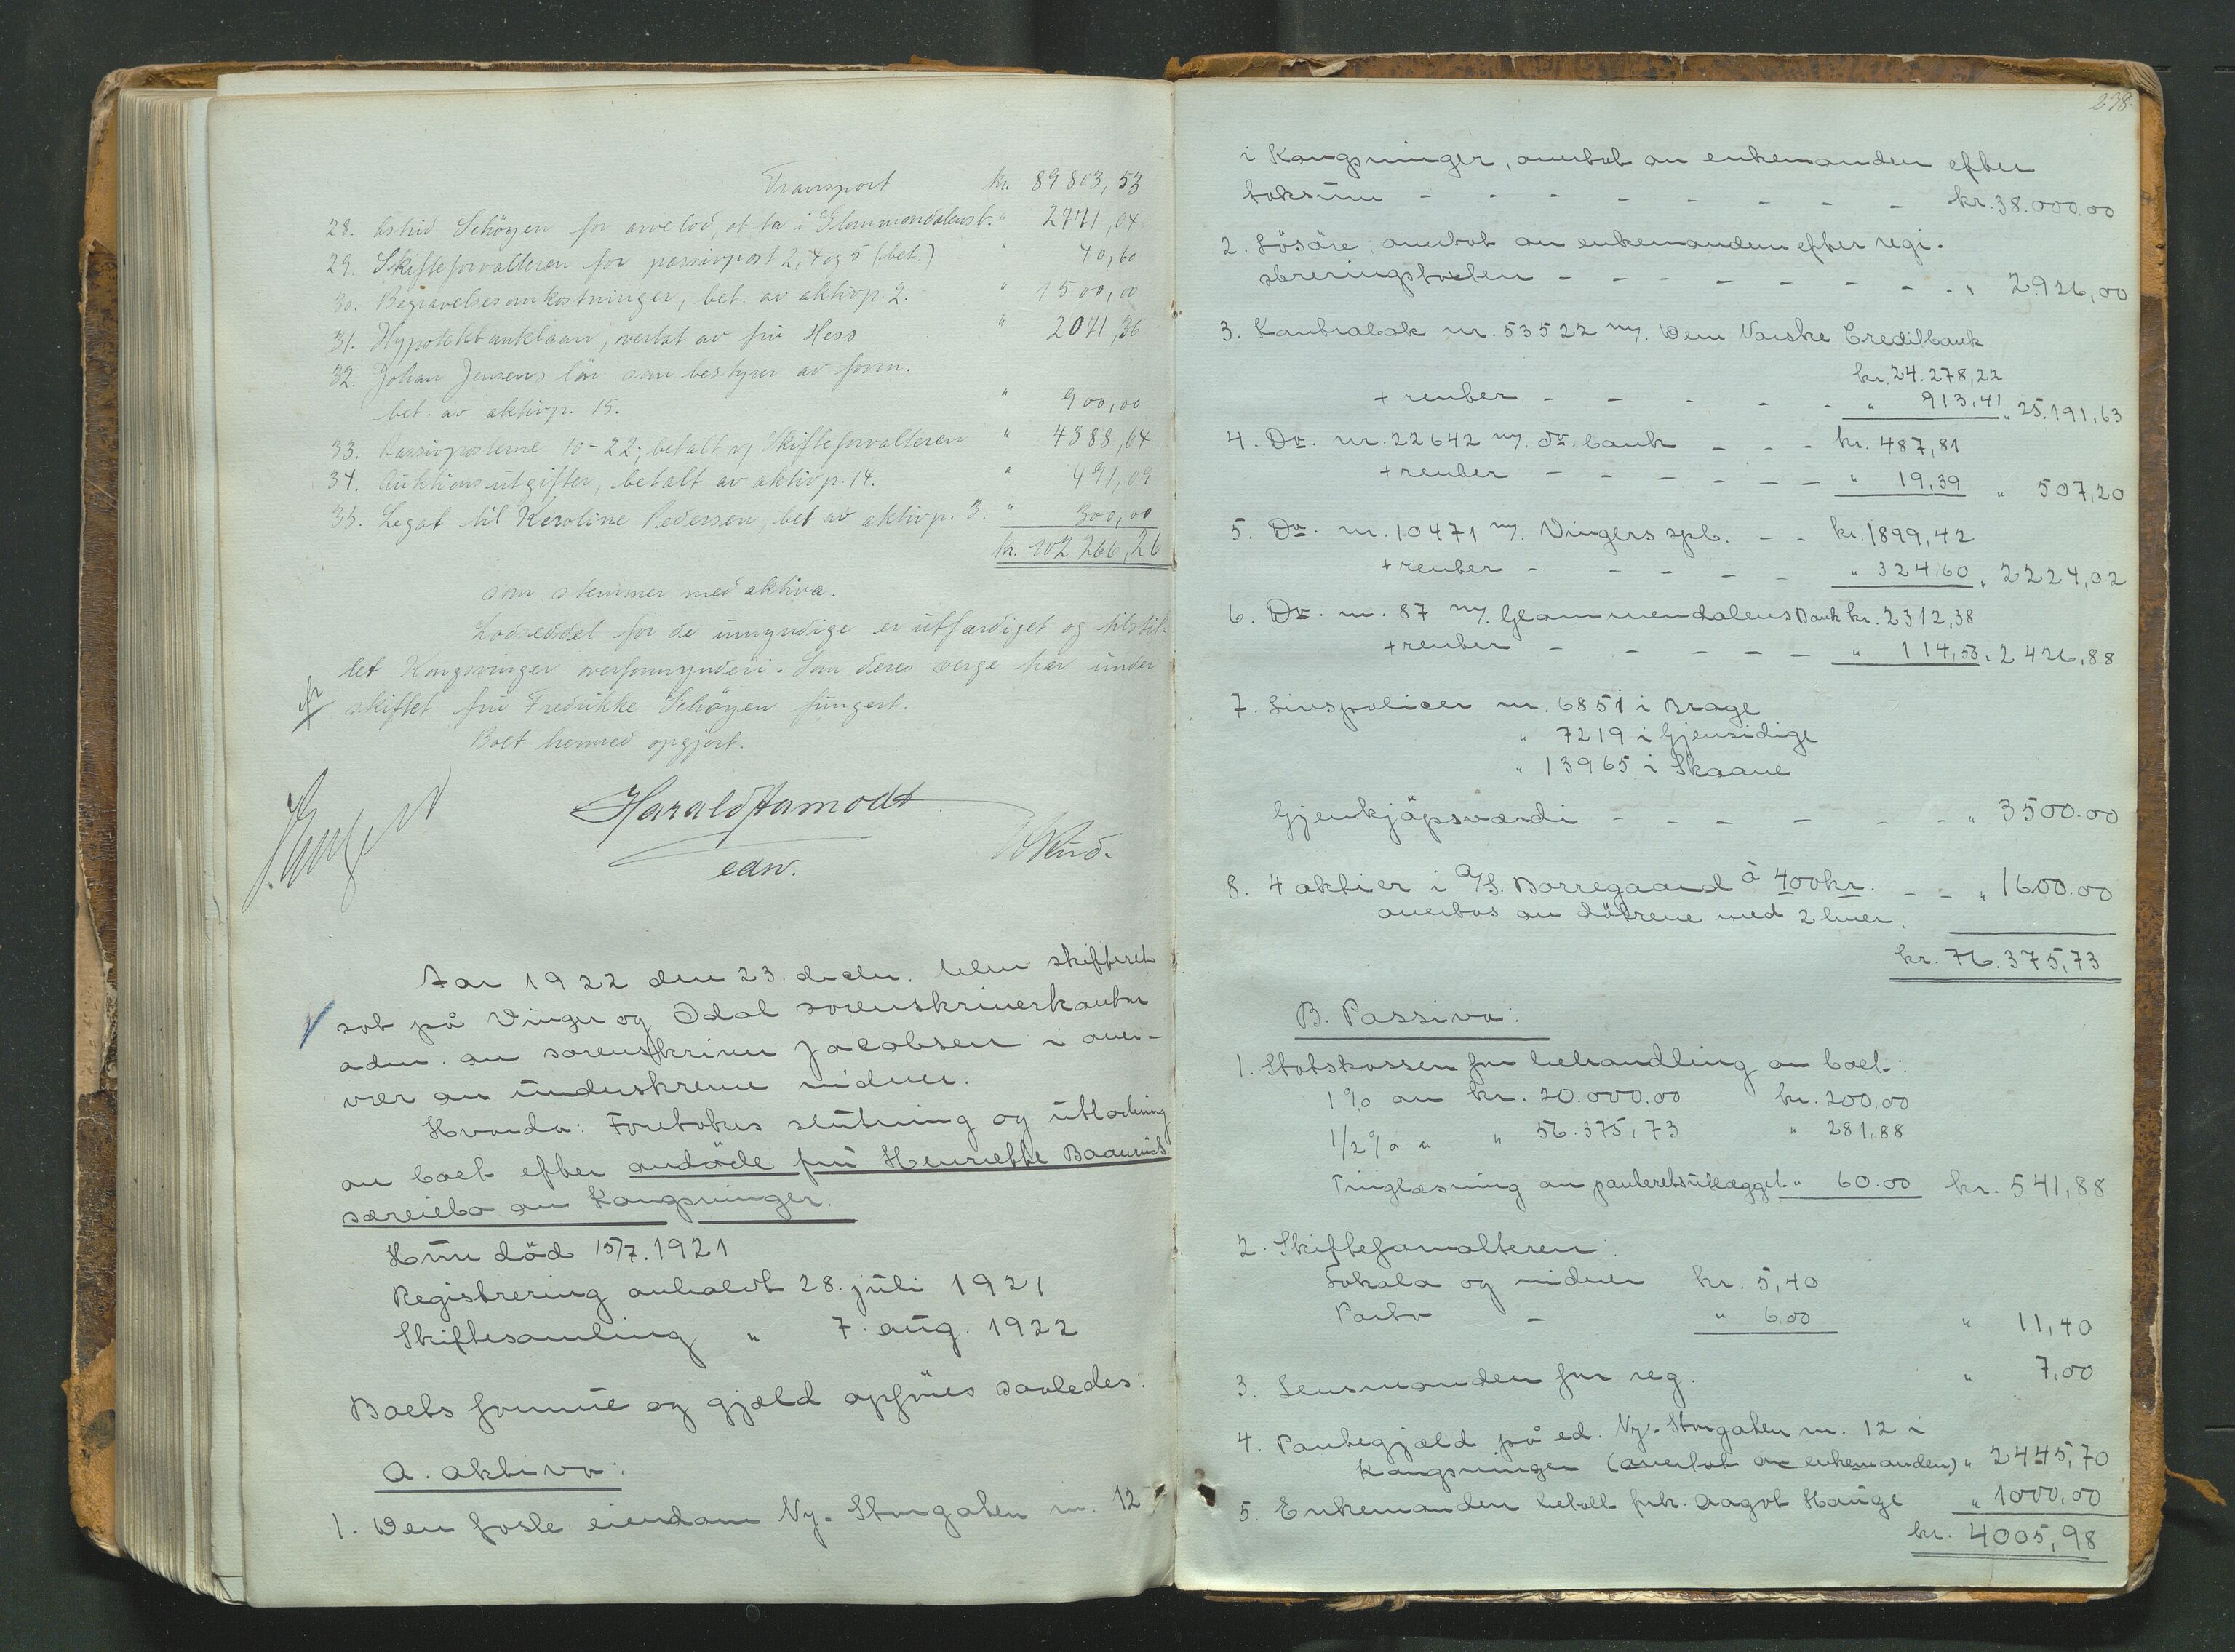 Transport kr. 89803,53
28. Astrid Schöyen for arvelod, at ta i Glommendalensb. " 2771,04
29. Skifteforvalteren for passivpost 2, 4 og 5 (bet.) " 40,60
30. Begravelsesomkostninger, bet. av aktivp. 2. " 1500,00
31. Hypotekbanklaan, overtat av fru Hess " 2071,36
32. Johan Jensens lön som bestyrer av forr.
bet. av aktivp. 15. " 900,00
33. Passivposterne 10-22, betalt v/ Skifteforvalteren " 4388,64
34. Auktionsutgifter, betalt av aktivp. 14. " 491,09
35. Legat til Karoline Pedersen, bet av aktivp. 3. " 300,00
kr. 102266,26
som stemmer med aktiva.
Lodseddel for de umyndige er utfærdiget og tilstil-
let Kongsvinger overformynderi. Som deres verge har under
skiftet fru Fredrikke Schöyen fungert.
Boet hermed opgjort.
Harald Aamodt
edsv.
Aar 1922 den 23. decbr. blev skifteret
sat på Vinger og Odal sorenskriverkontor
adm. av sorenskriver Jacobsen i over-
vær av underskrevne vidner.
Hvorda: Foretokes slutning og utlodning
av boet efter avdöde fru Henriette Baaurud
særeiebo av Kongsvinger.
Hun död 15/7. 1921
Registrering avholdt 28. juli 1921
Skiftesamling " 7. aug. 1922
Boets formue og gjæld opföres saaledes:
A. Aktiva:
1. Den faste eiendom Ny. Storgaten nr. 12
238.
i Kongsvinger, overtat av enkemanden efter
taksum - - - - - - - - kr. 38.000.00
2. Lösöre overtat av enkemanden efter regi-
streringstaksten - - - - - - - " 2926,00
3. Kontrabok nr. 53522 m/. Den Norske Creditbank
kr. 24.278,22
+ renter - - - - - " 913,41 " 25.191,63
4. Do. nr. 22642 m/. do. bank - - - kr. 487,81
+ renter - - - - - - " 19,39 " 507,20
5. Do. nr. 10471 m/. Vingers spb. - - kr. 1899,42
+ renter - - - - - " 324,60 " 2224,02
6. Do. nr. 87 m/. Glommendalens Bank kr. 2312,38
+ renter - - - - - " 114,50 " 2426,88
7. Livspolicer nr. 6851 i Brage
" 7219 i Gjensidige
" 13965 i Skaane
Gjenkjöpsværdi - - - - - - " 3500.00
8. 4 aktier i A/S. Borregaard à 400 kr. - - " 1600.00
overtas av döttrene med 2 hver.
kr. 76.375,73
B. Passiva:
1. Statskassen for behandling av boet:
1% av kr. 20.000.00 kr. 200,00
1/2% " " 56.375,73 " 281,88
Tinglæsning av panteretsutlægget " 60.00 kr. 541,88
2. Skifteforvalteren:
Lokale og vidner kr. 5,40
Porto - " 6.00 " 11,40
3. Lensmanden for reg. " 7,00
4. Pantegjæld på ed. Ny. Storgaten nr. 12 i
Kongsvinger (overtat av enkemanden) " 2445,70
5. Enkemanden betalt frk. Aagot Hauge " 1000,00
kr. 4005,98